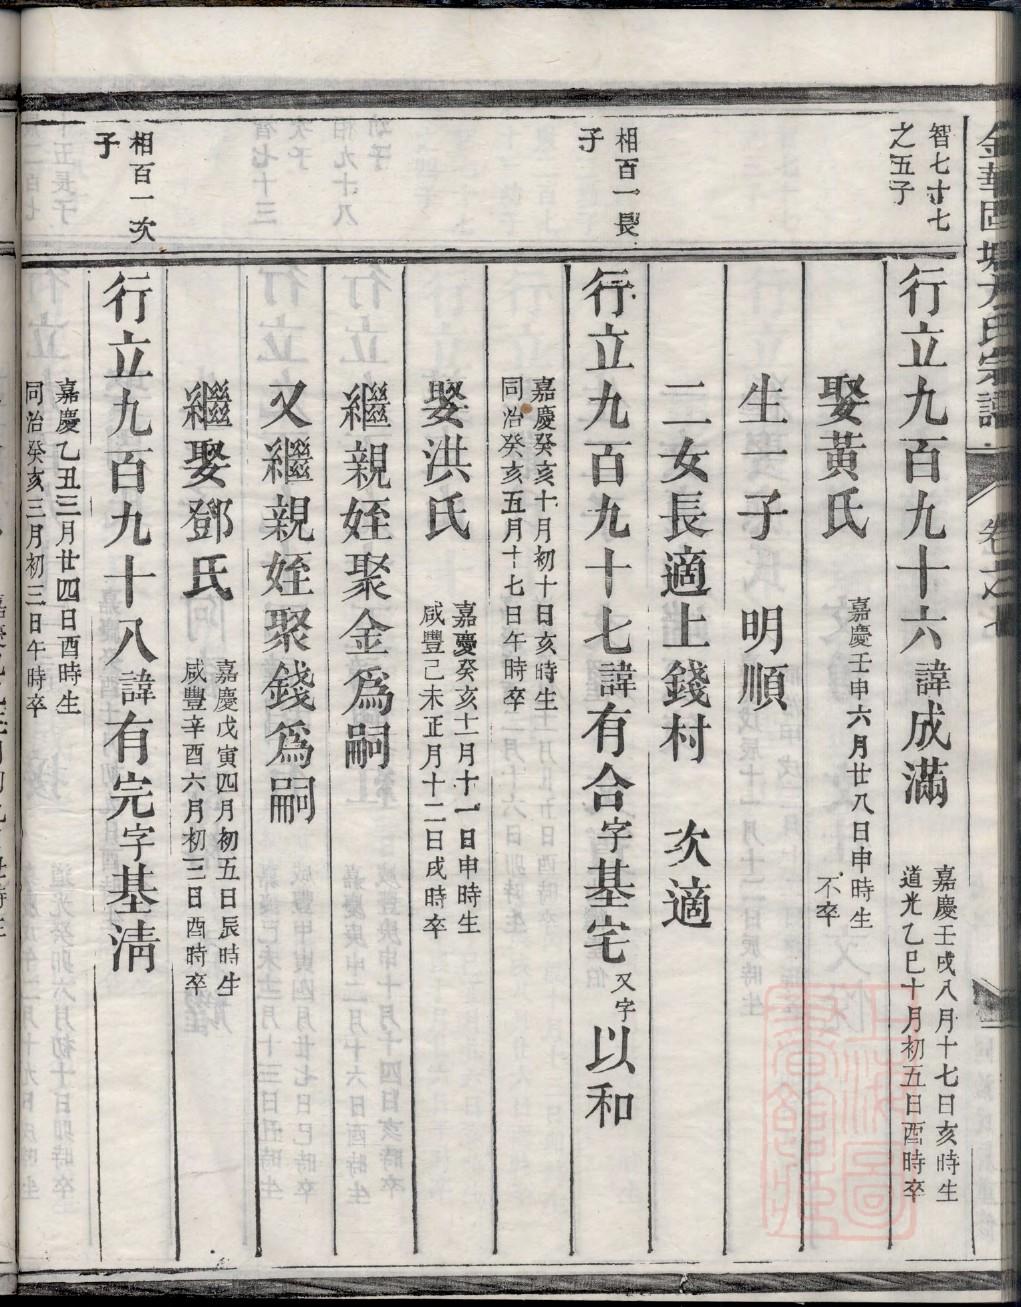 金華
氏宗譜
卷之
智七十七
之五子
行立九百九十六諱成滿
嘉慶壬戌八月十七日亥時生
道光乙巳十月初五日酉時卒
娶黃氏
嘉慶壬申六月廿八日申時生
不卒
生一子　明順
二女長適上錢村　次適
相百一長
子
行立九百九十七諱有合字基宅又字以和
嘉慶癸亥十月初十日亥時生
同治癸亥五月十七日午時卒
娶洪氏
嘉慶癸亥十一月十一日申時生
咸豐己未正月十二日戌時卒
繼親姪聚金爲嗣
又繼親姪聚錢爲嗣
繼娶鄧氏
嘉慶戊寅四月初五日辰時生
咸豐辛酉六月初三日酉時卒
相百一次
子
行立九百九十八諱有完字基淸
嘉慶乙丑三月廿四日酉時生
同治癸亥三月初三日午時卒